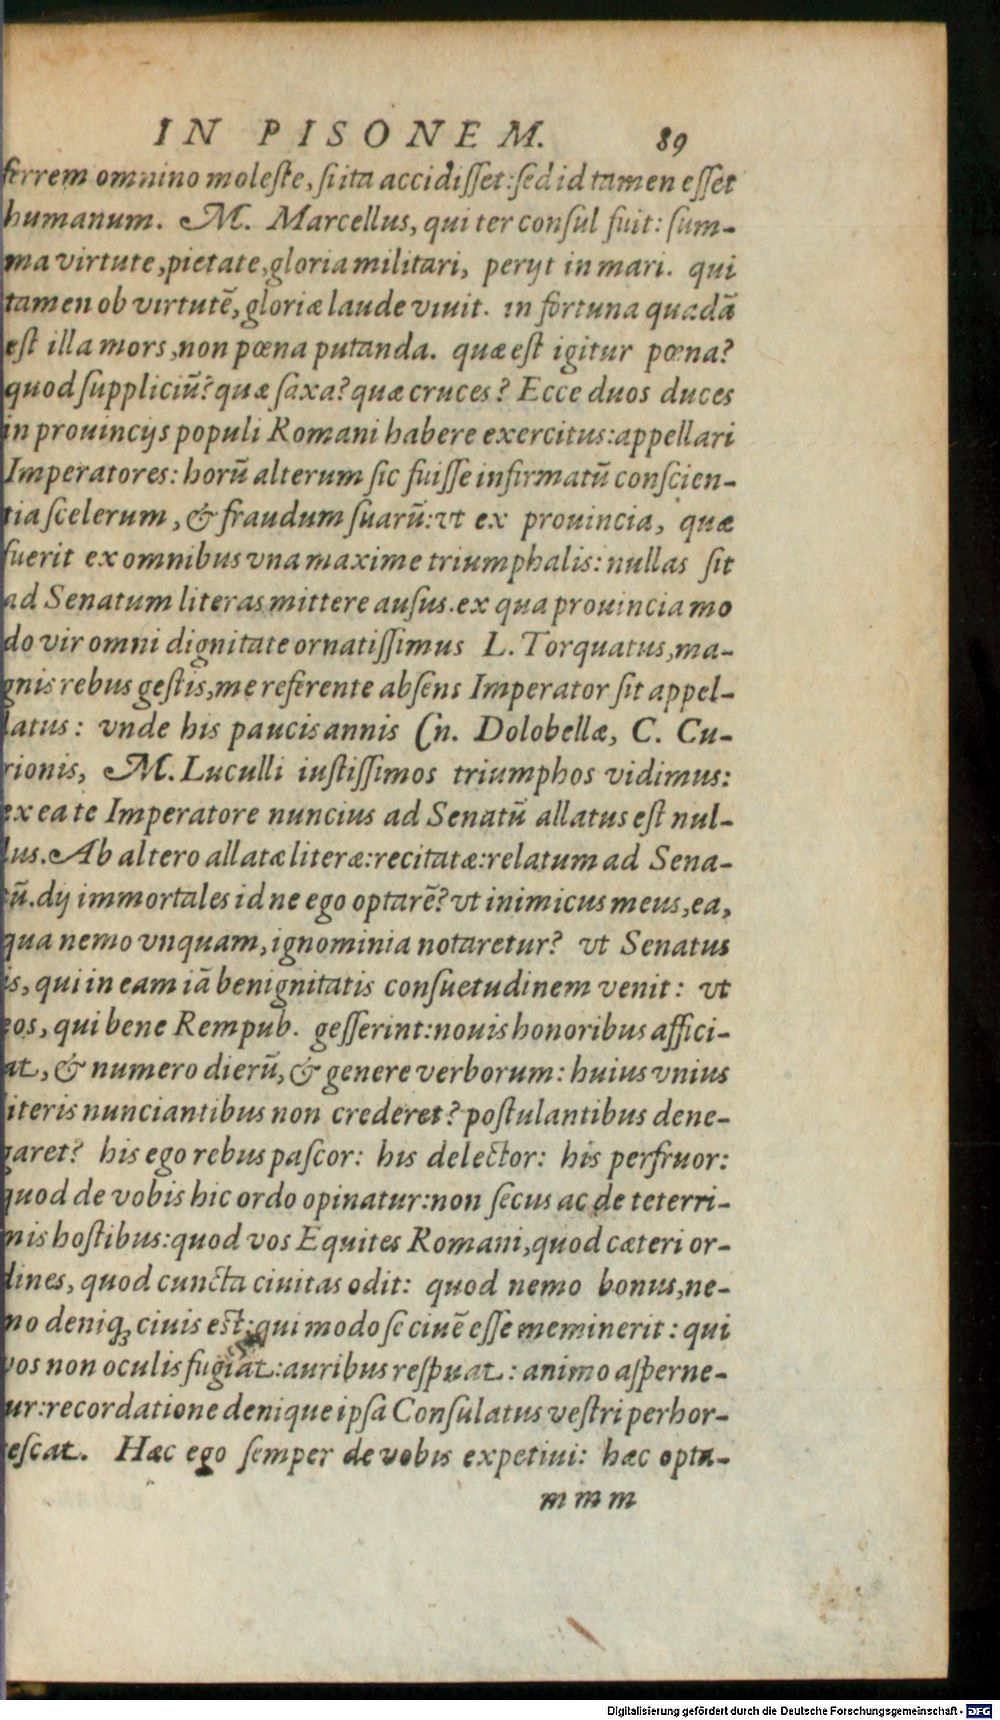 IN PISONEM. 89
ferrem omnino moleste, si ita accidisset: sed id tamen esset
humanum. M. Marcellus, qui ter consul fuit: sum-
ma virtute, pietate, gloria militari, perijt in mari. qui
tamen ob virtutē, gloriæ laude viuit. in fortuna quadā
est illa mors, non pœna putanda. quæ est igitur pœna?
quod suppliciū? quæ saxa? quæ cruces? Ecce duos duces
in prouincijs populi Romani habere exercitus: appellari
Imperatores: horū alterum sic fuisse infirmatū conscien-
tia scelerum, & fraudum suarū: vt ex prouincia, quæ
fuerit ex omnibus vna maxime triumphalis: nullas sit
ad Senatum literas mittere ausus. ex qua prouincia mo
do vir omni dignitate ornatissimus L. Torquatus, ma-
gnis rebus gestis, me referente absens Imperator sit appel-
latus: vnde his paucis annis Cn. Dolobellæ, C. Cu-
rionis, M. Luculli iustissimos triumphos vidimus:
ex ea te Imperatore nuncius ad Senatū allatus est nul-
lus. Ab altero allatæ literæ: recitatæ: relatum ad Sena-
tū. dij immortales id ne ego optarē? vt inimicus meus, ea,
qua nemo vnquam, ignominia notaretur? vt Senatus
is, qui in eam iā benignitatis consuetudinem venit: vt
eos, qui bene Rempub. gesserint: nouis honoribus affici-
at, & numero dierū, & genere verborum: huius vnius
literis nunciantibus non crederet? postulantibus dene-
garet? his ego rebus pascor: his delector: his perfruor:
quod de vobis hic ordo opinatur: non secus ac de teterri-
mis hostibus: quod vos Equites Romani, quod cæteri or-
dines, quod cuncta ciuitas odit: quod nemo bonus, ne-
mo deniqȝ ciuis est: qui modo se ciuē esse meminerit: qui
vos non oculis fugiat: auribus respuat: animo asperne-
tur: recordatione denique ipsa Consulatus vestri perhor-
rescat. Hæc ego semper de vobis expetiui: hæc opta-
m m m
Digitalisierung gefördert durch die Deutsche Forschungsgemeinschaft - DFG